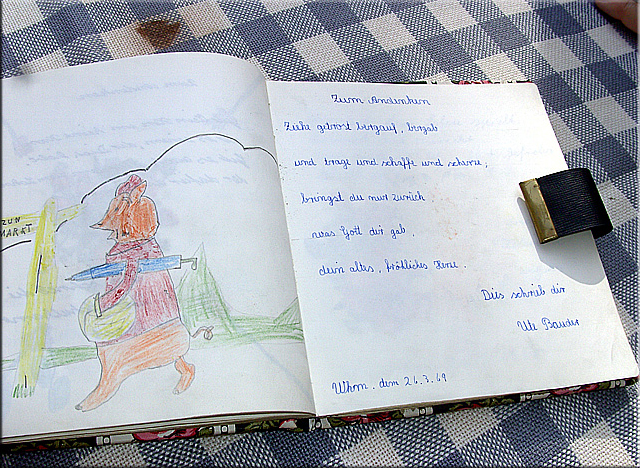 ZUM
MARKT
Zum Andenken
Ziehe getrost bergauf, bergab
und trage und schaffe und scherze,
bringst du nur zurück
was Gott dir gab,
dein altes, fröhliches Herz.
Dies schrieb dir
Ute Bauder
den 26.3.69